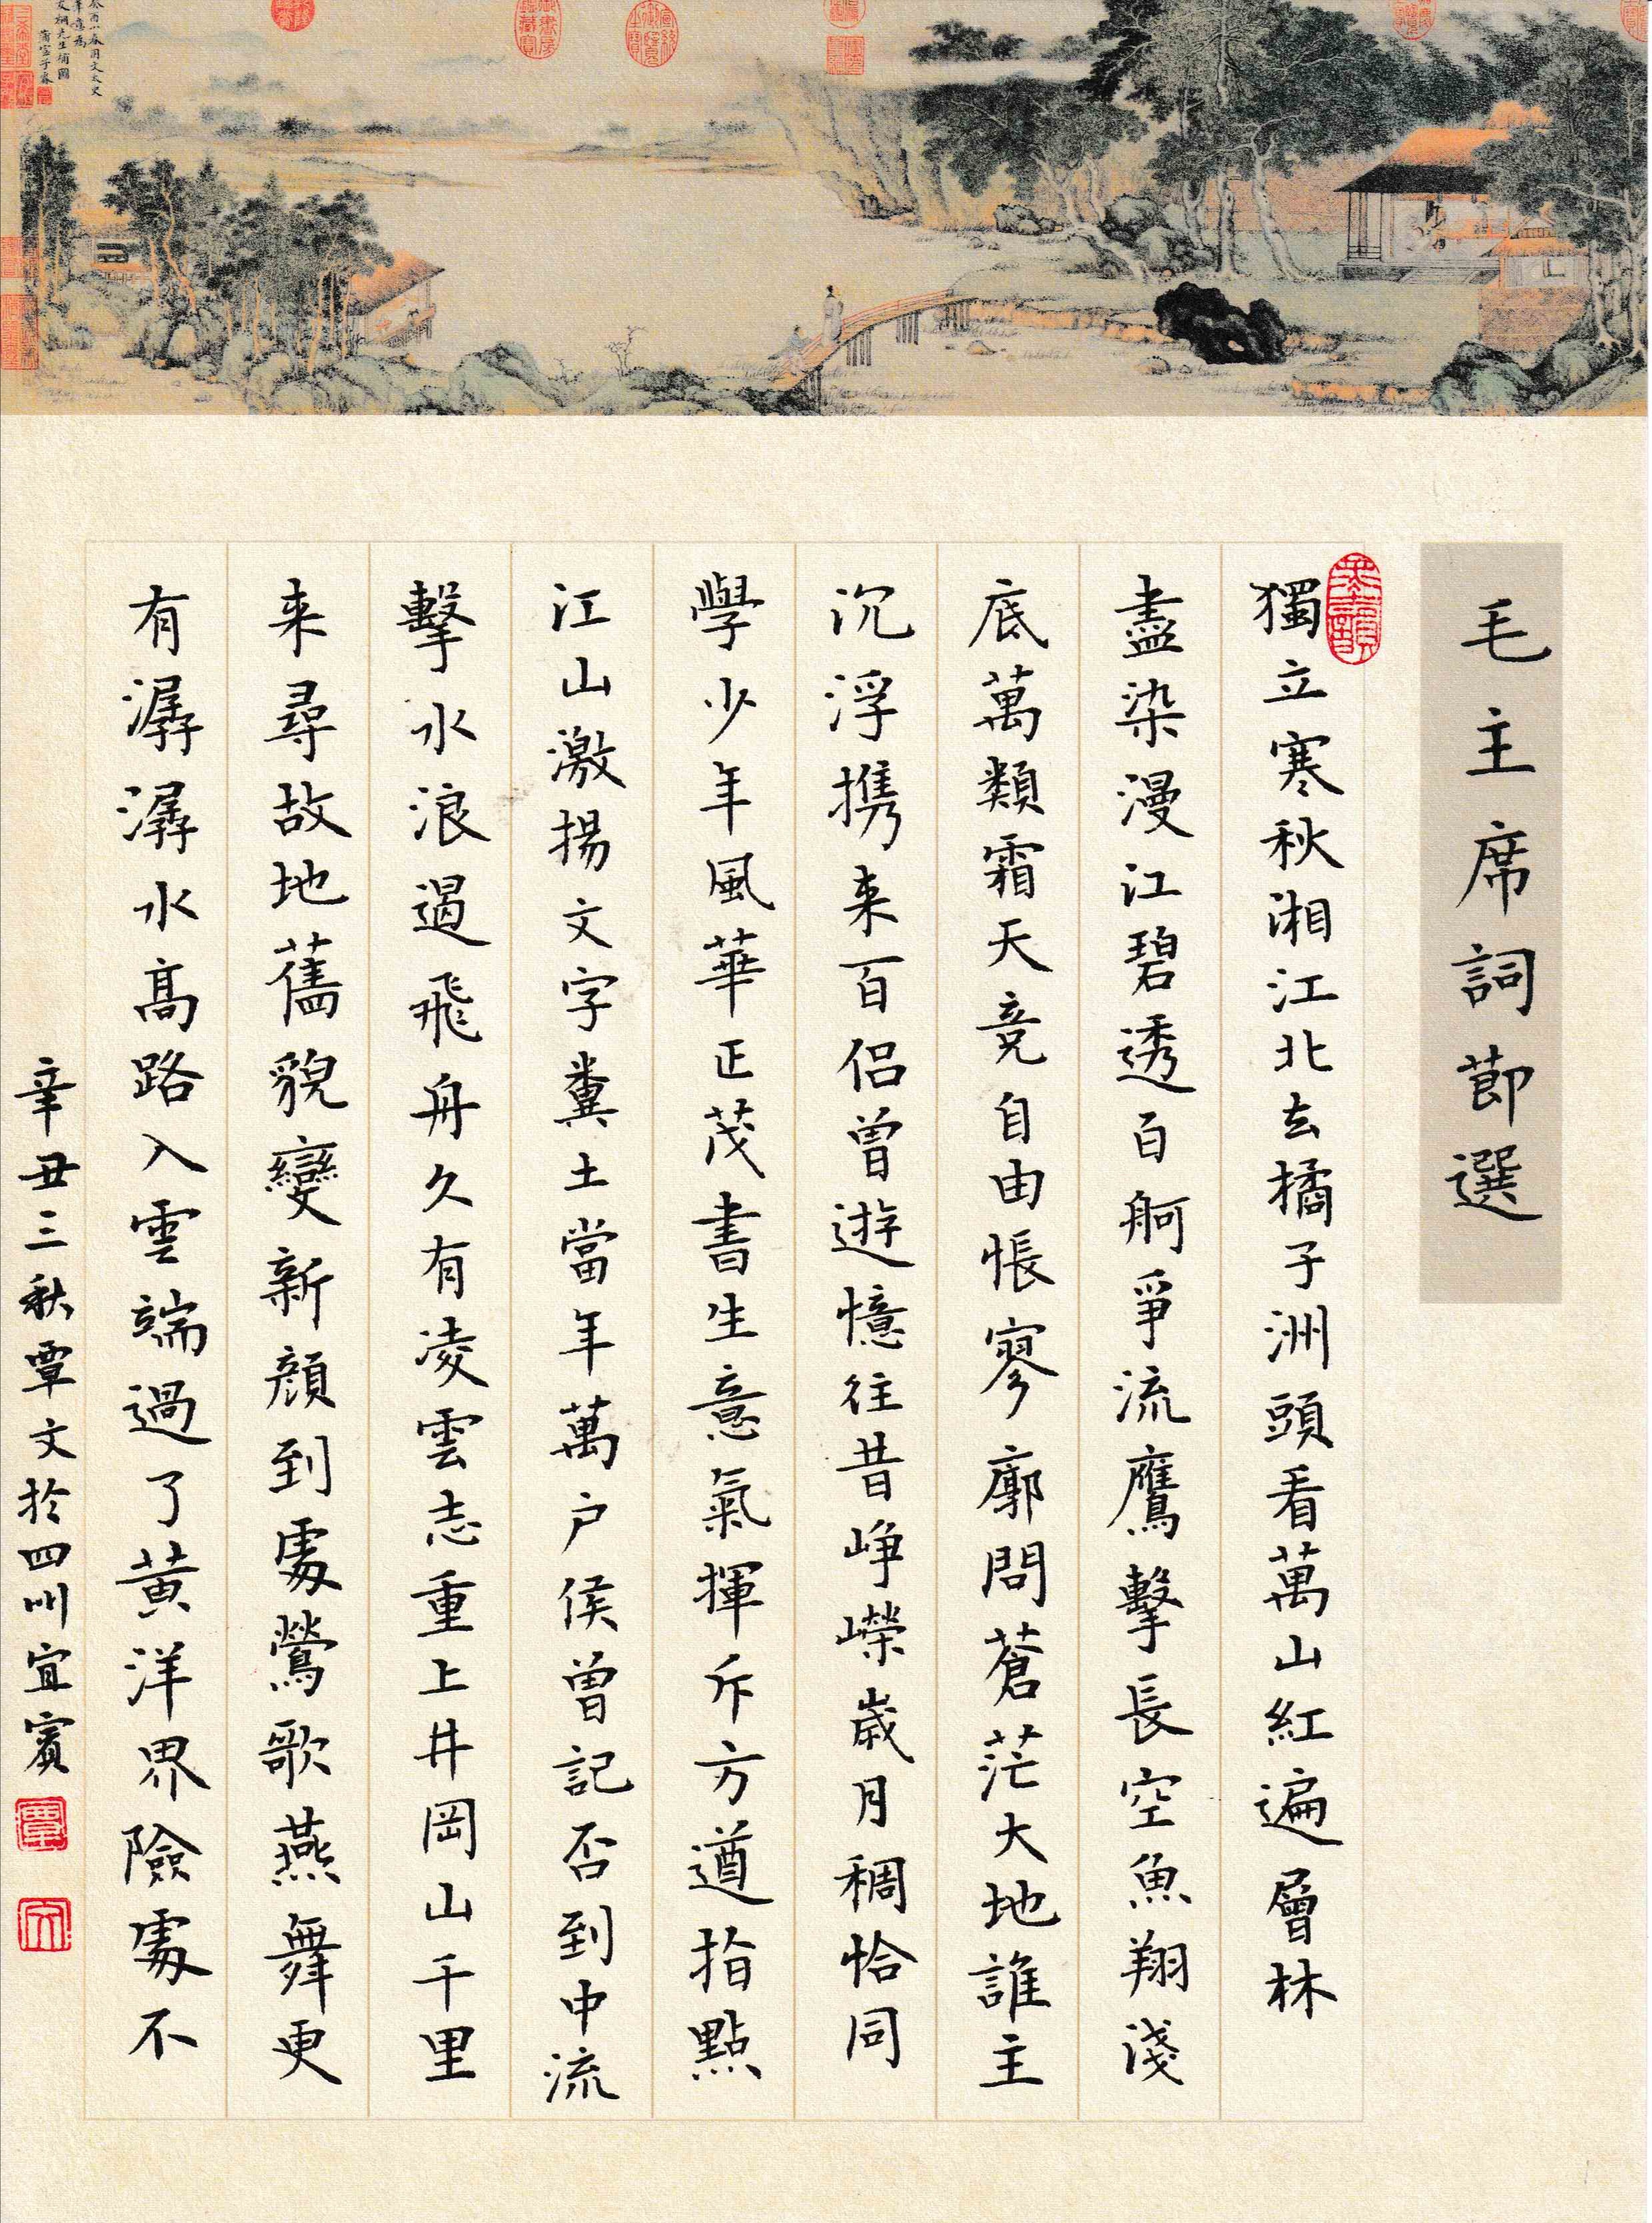 毛主席詞莭選
獨立寒秋湘江北去橘子洲頭看萬山紅遍層林
盡染漫江碧透百舸爭流鷹擊長空魚翔淺
底萬類霜天竞自由悵寥廓問蒼茫大地誰主
沉浮携来百侣曾遊憶往昔崢嶸歲月稠恰同
學少年風華正茂書生意氣揮斥方遒指點
江山激揚文字糞土當年萬户侯曾記否到中流
擊水浪遏飛舟久有凌雲志重上井岡山千里
来尋故地舊貌變新顔到處鶯歌燕舞更
有潺潺水髙路入雲端過了黄洋界險處不
辛丑三秋覃文於四川宜賓
覃
文